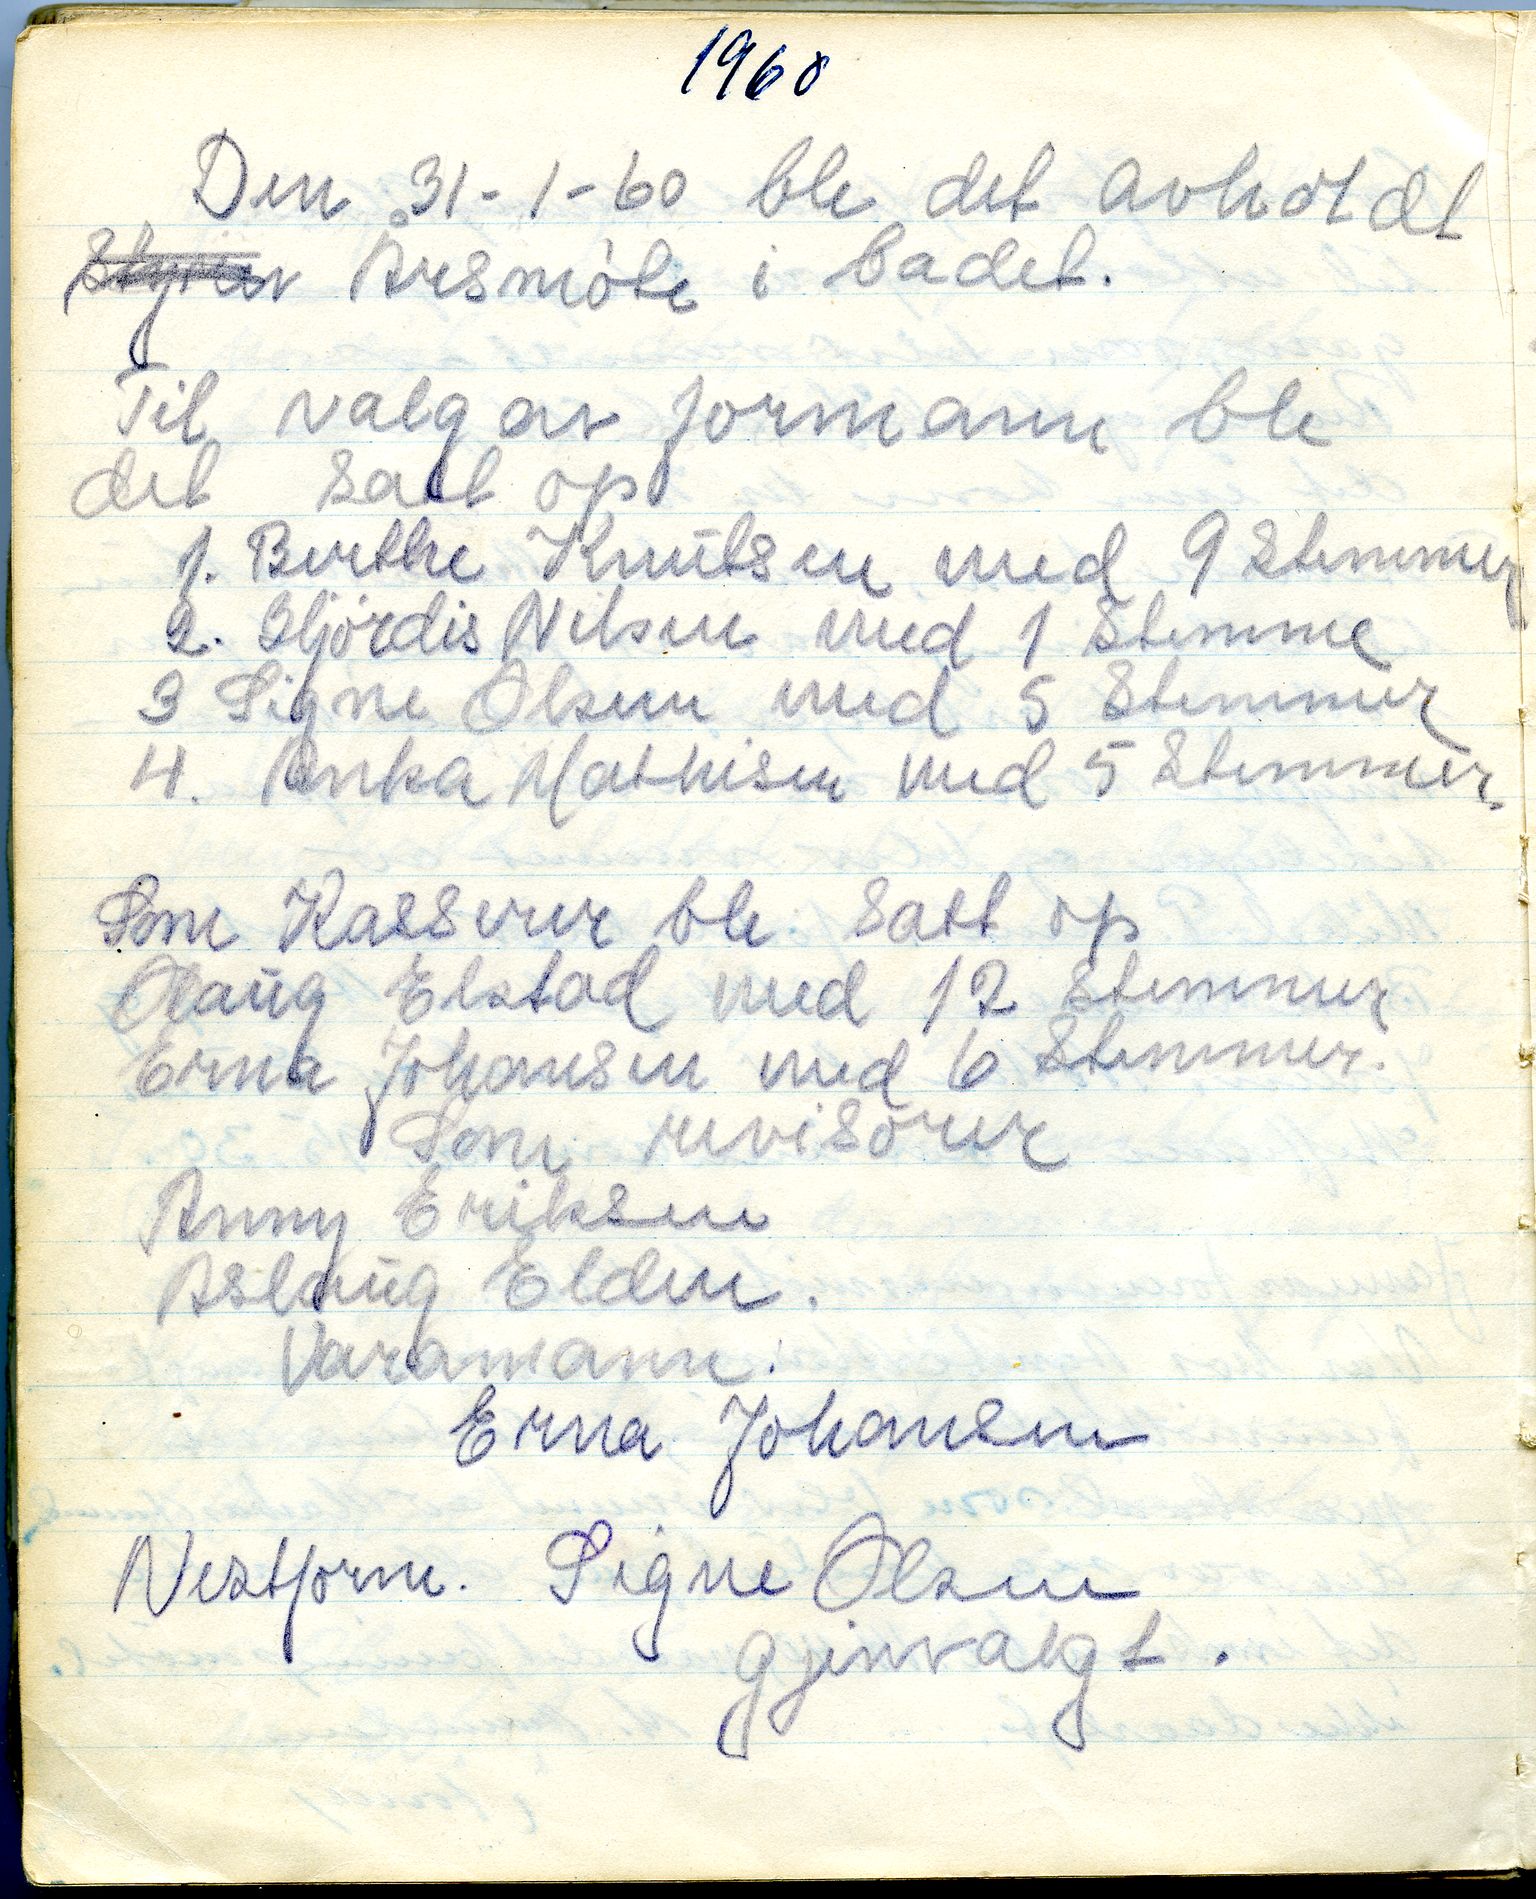 1960
Den 31-1-60 ble det avholdt
Årsmöte i badet.
Til valg av formann ble
det satt op
1. Berthe Knutsen med 9 Stemmer
2. Hjördis Nilsen med 1 Stemme
3 Signe Olsen med 5 Stemmer
4. Anka Mathisen med 5 Stemmer.
Som Kasserer ble satt op
Olaug Elstad med 12 Stemmer
Erna Johansen med 6 Stemmer.
Som revisörer
Anny Eriksen
Aslaug Elden.
Varamann:
Erna Johansen
Nestform. Signe Olsen
gjenvalgt.